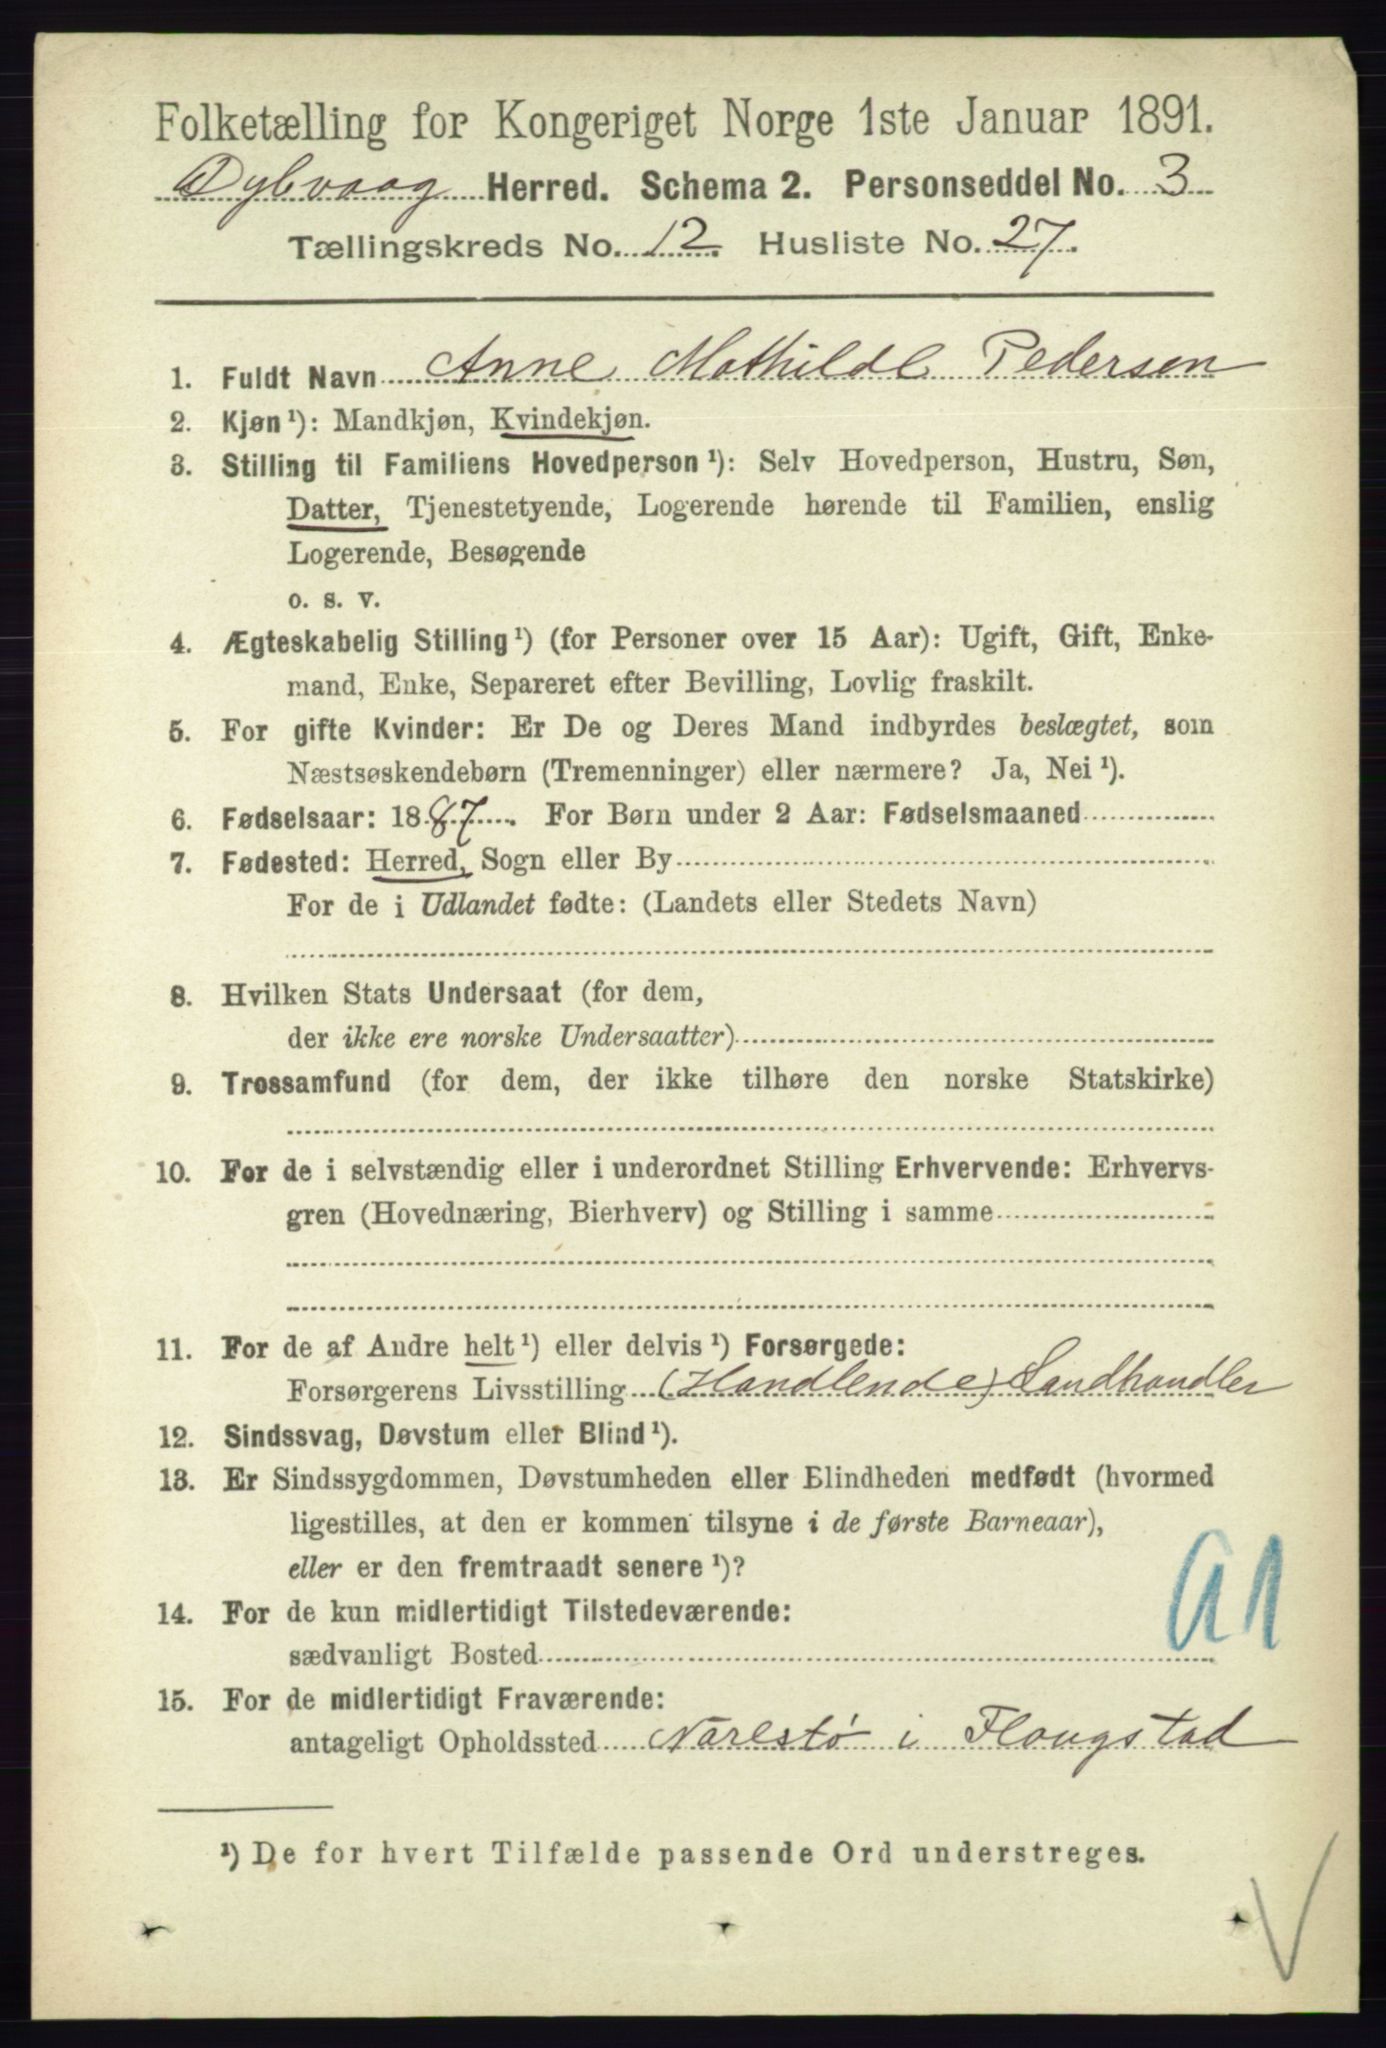 Folketælling for Kongeriget Norge 1ste Januar 1891.
Dybvaag Herred. Schema 2. Personseddel No. 3
Tællingskreds No. 12. Husliste No. 27.
1. Fuldt Navn Anne Mathilde Pedersen
2. Kjøn¹): Mandkjøn, Kvindekjøn.
3. Stilling til Familiens Hovedperson¹): Selv Hovedperson, Hustru, Søn,
Datter, Tjenestetyende, Logerende hørende til Familien, enslig
Logerende, Besøgende
o. s. v.
4. Ægteskabelig Stilling¹) (for Personer over 15 Aar): Ugift, Gift, Enke-
mand, Enke, Separeret efter Bevilling, Lovlig fraskilt.
5. For gifte Kvinder: Er De og Deres Mand indbyrdes beslægtet, som
Næstsøskendebørn (Tremenninger) eller nærmere? Ja, Nei¹).
6. Fødselsaar: 1887. For Børn under 2 Aar: Fødselsmaaned
7. Fødested: Herred, Sogn eller By
For de i Udlandet fødte: (Landets eller Stedets Navn)
8. Hvilken Stats Undersaat (for dem,
der ikke ere norske Undersaatter)
9. Trossamfund (for dem, der ikke tilhøre den norske Statskirke)
10. For de i selvstændig eller i underordnet Stilling Erhvervende: Erhvervs-
gren (Hovednæring, Bierhverv) og Stilling i samme
11. For de af Andre helt¹) eller delvis¹) Forsørgede:
Forsørgerens Livsstilling (Handlende) Landhandler
12. Sindssvag, Døvstum eller Blind¹).
13. Er Sindssygdommen, Døvstumheden eller Blindheden medfødt (hvormed
ligestilles, at den er kommen tilsyne i de første Barneaar),
eller er den fremtraadt senere¹)?
14. For de kun midlertidigt Tilstedeværende:
sædvanligt Bosted
a1
15. For de midlertidigt Fraværende:
antageligt Opholdssted Narestø i Flougstad
¹) De for hvert Tilfælde passende Ord understreges.